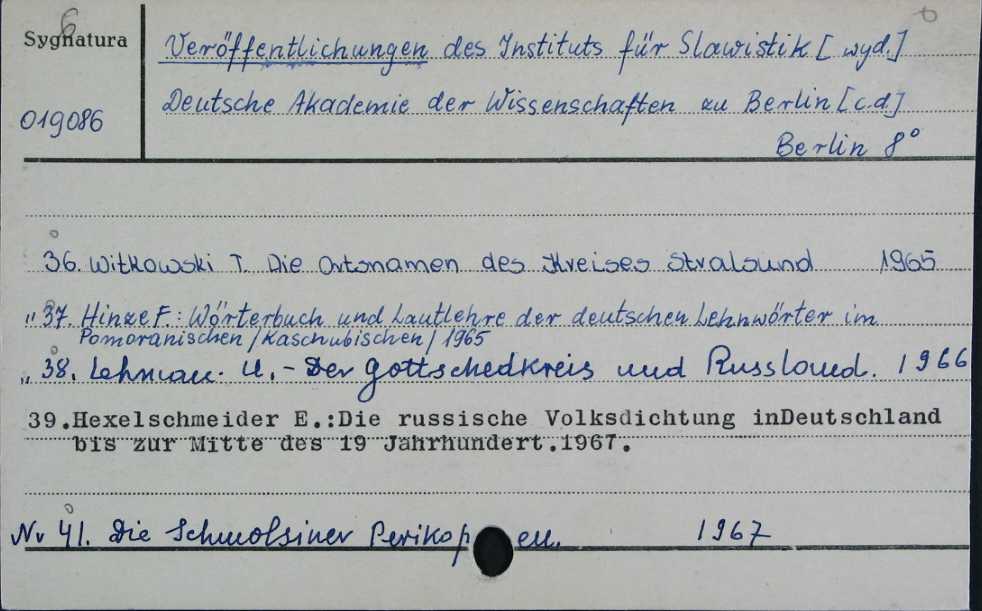 6
Sygnatura
Veröffentlichungen des Instituts für Slawistik [wyd.]
019086
Deutsche Akademie der Wissenschaften zu Berlin [c.d]
Berlin 8°
36. Witkowski T. Die Ortsnamen des Kreises Stralsund 1965
" 37. Hinze F.: Wörterbuch und Lautlehre der deutschen Lehnwörter im
Pomoranischen /Kaschubischen/ 1965
" 38. Lehmann. U. - Der Gottschedkreis und Russland. 1966
39.Hexelschmeider E.:Die russische Volksdichtung inDeutschland
bis zur Mitte des 19 Jahrhundert.1967.
Nr 41. Die Schmolsiner Perikopen. 1967